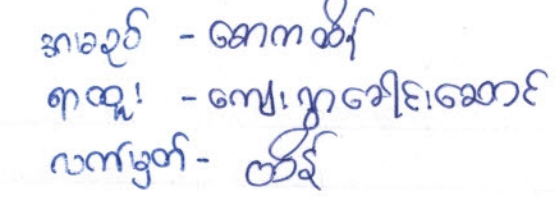 အမည် - စောကထိန်
ရာထူး - ကျေးရွာခေါင်းဆောင်
လက်မှတ် - ထိန်